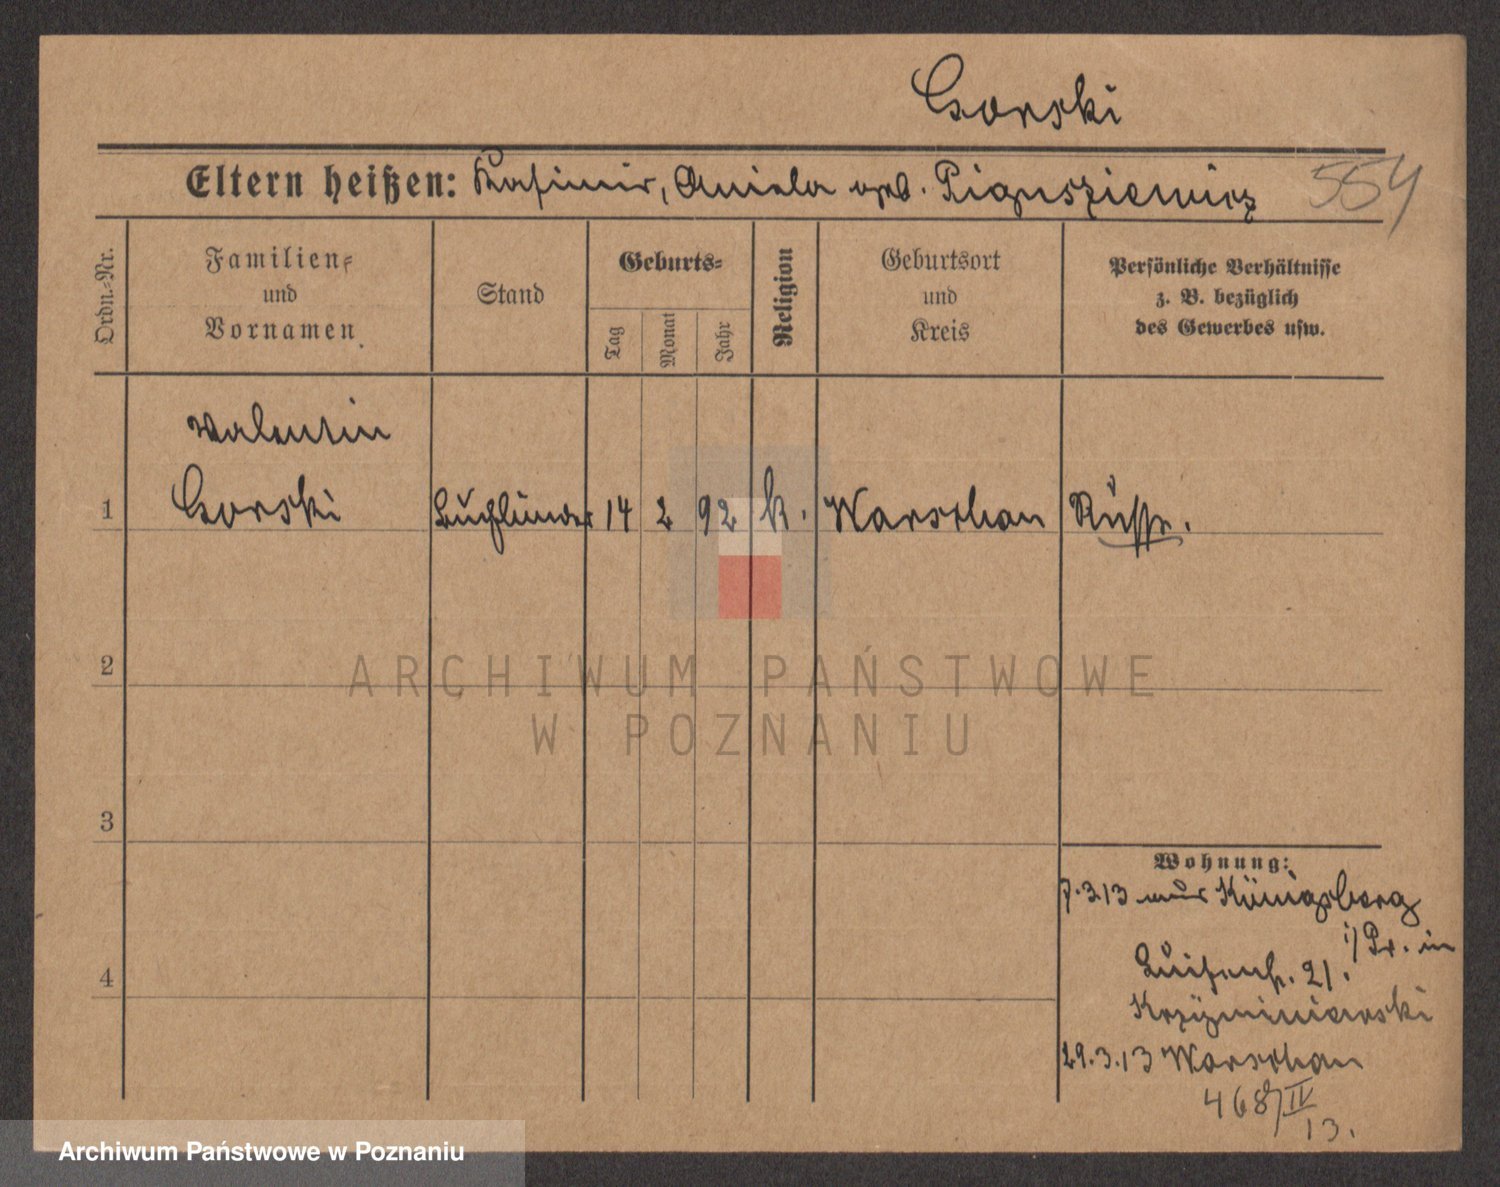 Gorski
Eltern heißen: Kasimir, Aniela geb. Piguszievicz 554
Ordn.-Nr.
Familien-
und
Vornamen
Stand
Geburts-
Tag
Monat
Jahr
Religion
Geburtsort
und
Kreis
Persönliche Verhältnisse
z. B. bezüglich
des Gewerbes usw.
Valentin
1 Gorski 14 2 92 k. Warschau Russe.
2
3
4
Wohnung:
7.3.13 aus Königsberg
i/Pr. in
Luisenst. 21.
29.3.13 Warschau
468/IV
13.
ARCHIWUM PAŃSTWOWE
W POZNANIU
Archiwum Państwowe w Poznaniu